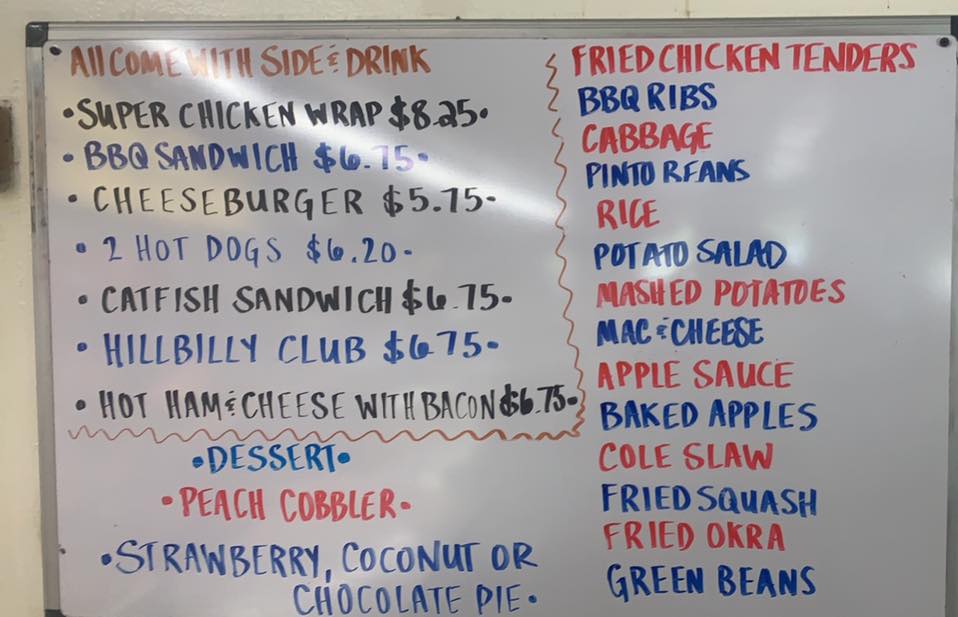 All COME WITH SIDE & DRINK
•SUPER CHICKEN WRAP $8.25•
• BBQ SANDWICH $6.75•
• CHEESEBURGER $5.75-
• 2 HOT DOGS $6.20-
• CATFISH SANDWICH $6.75-
• HILLBILLY CLUB $6.75-
• HOT HAM & CHEESE WITH BACON $6.75-
•DESSERT•
•PEACH COBBLER•
•STRAWBERRY, COCONUT OR
CHOCOLATE PIE•
FRIED CHICKEN TENDERS
BBQ RIBS
CABBAGE
PINTO BEANS
RICE
POTATO SALAD
MASHED POTATOES
MAC & CHEESE
APPLE SAUCE
BAKED APPLES
COLE SLAW
FRIED SQUASH
FRIED OKRA
GREEN BEANS